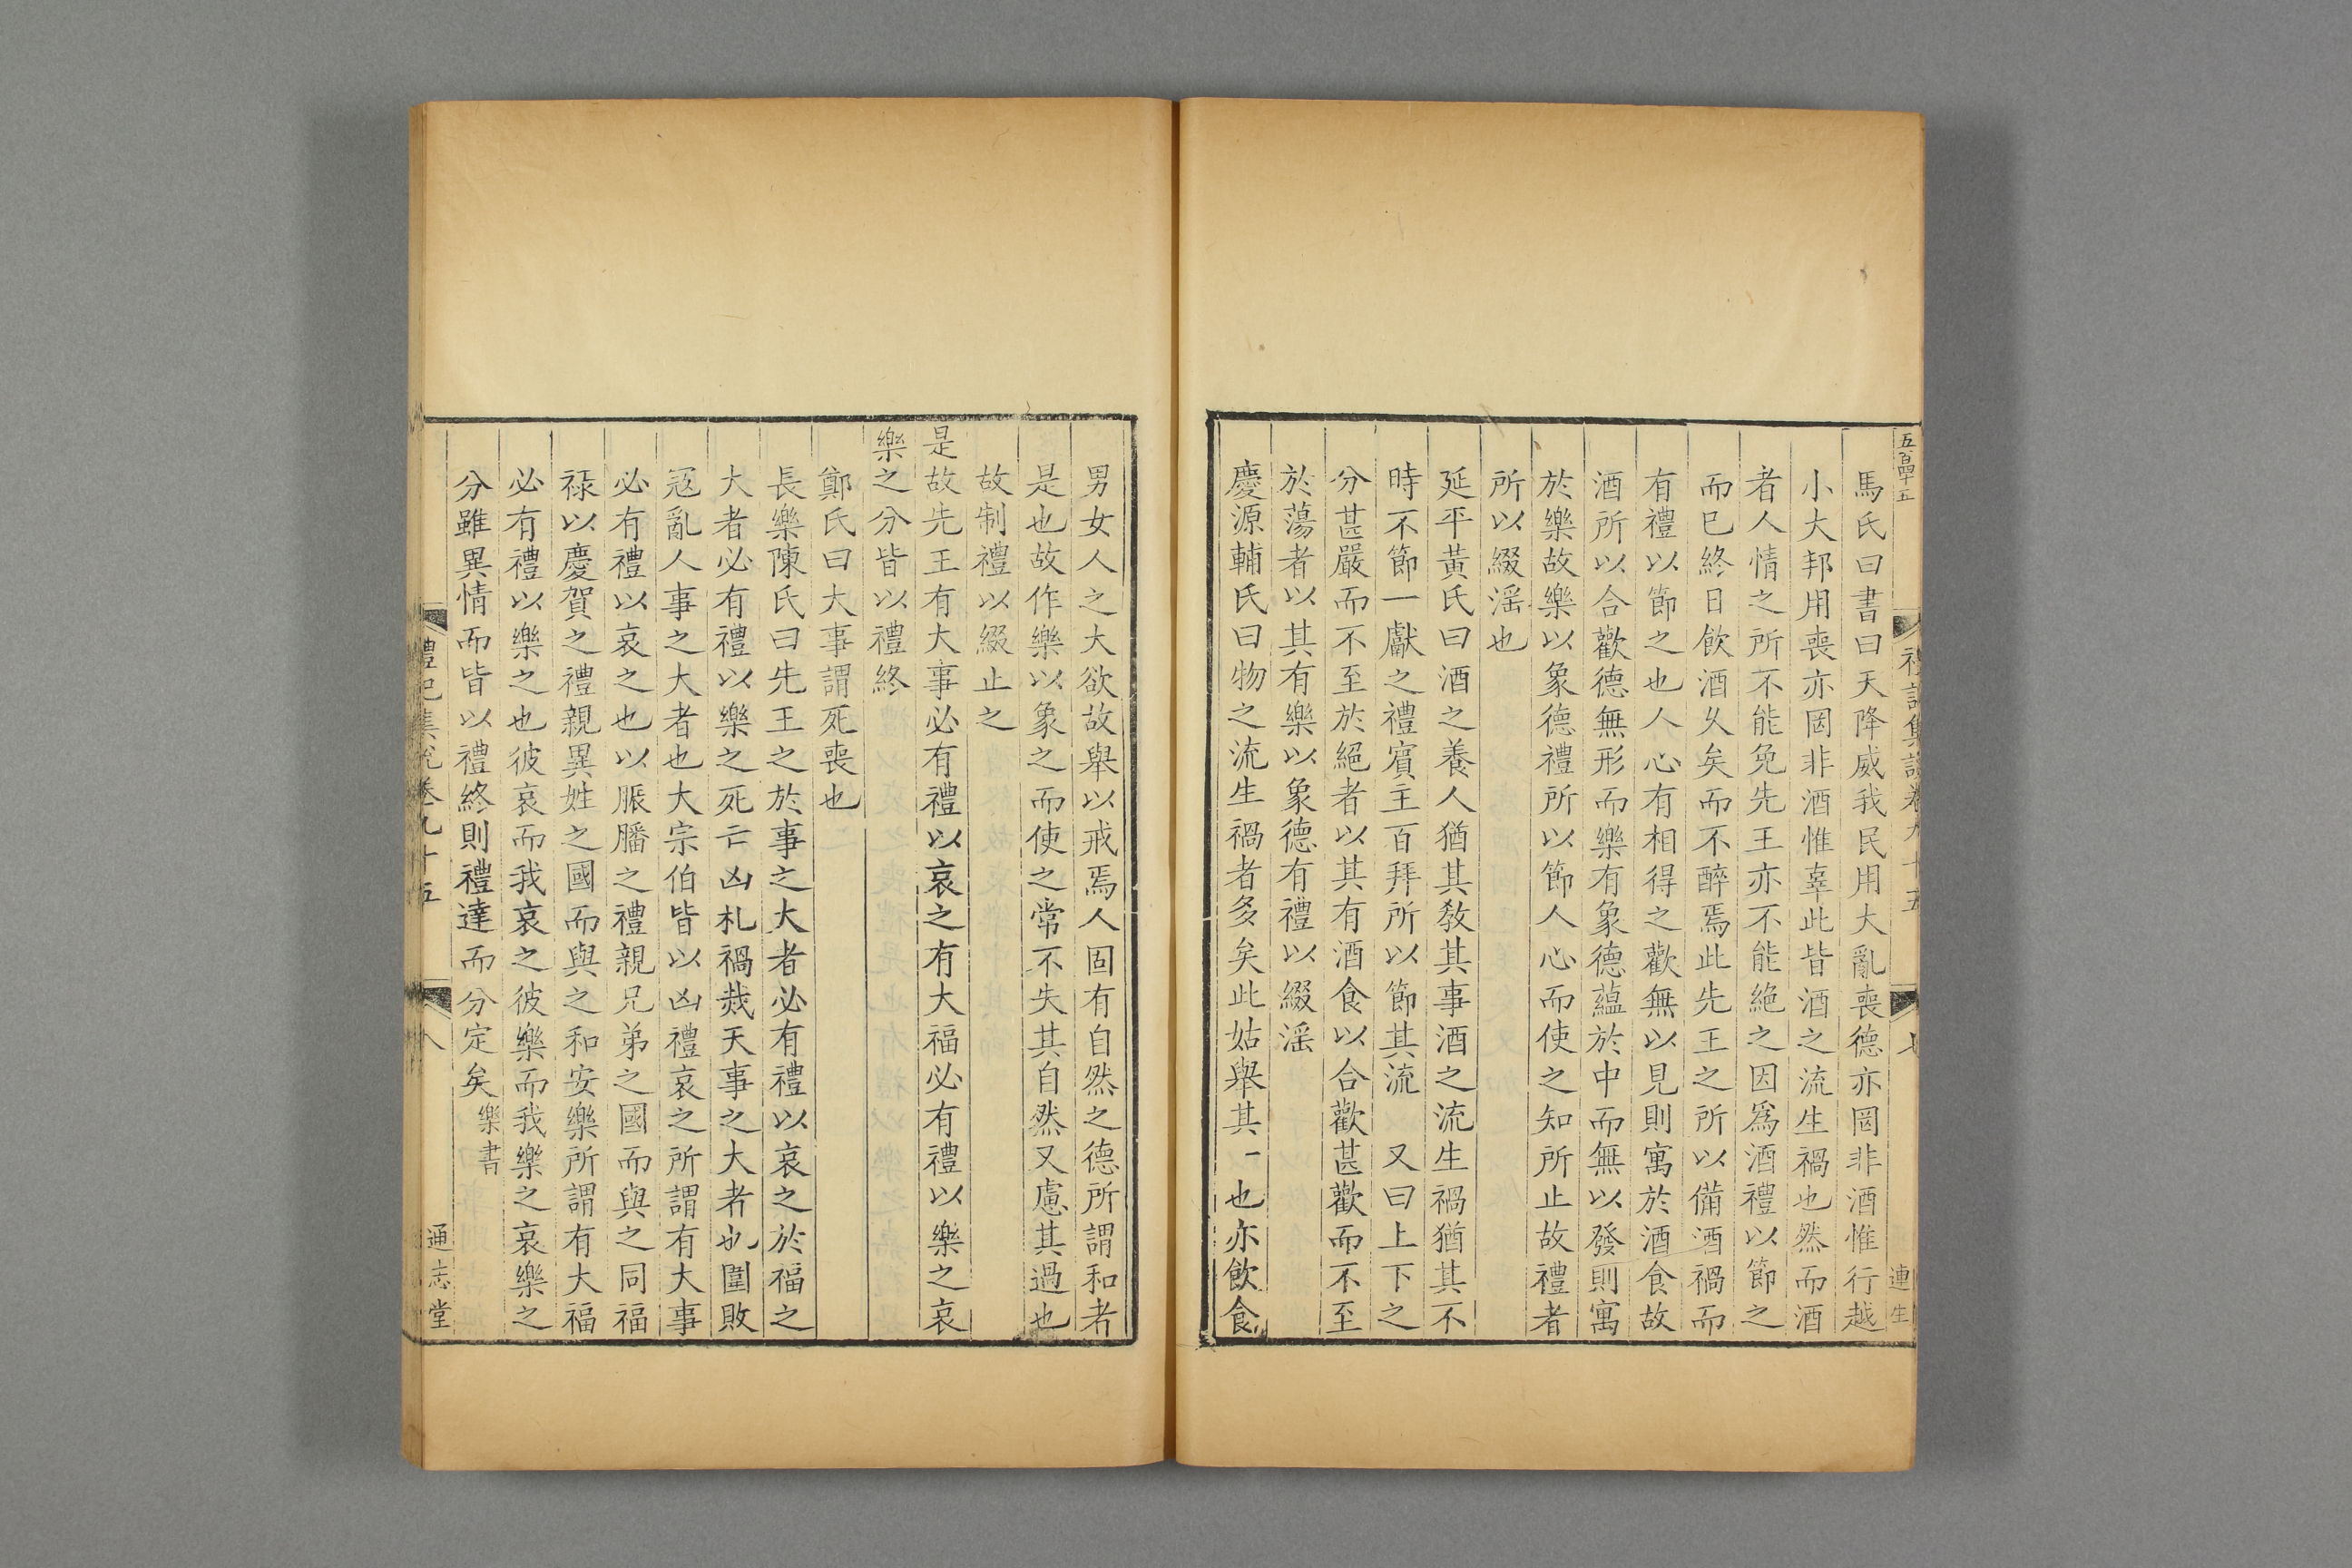 五百四十五
禮記集說卷九十五
七
連生
馬氏曰書曰天降威我民用大亂喪德亦罔非酒惟行越
小大邦用喪亦罔非酒惟辜此皆酒之流生禍也然而酒
者人情之所不能免先王亦不能絶之因爲酒禮以節之
而已終日飲酒乆矣而不醉焉此先王之所以備酒禍而
有禮以節之也人心有相得之歡無以見則寓於酒食故
酒所以合歡德無形而樂有象德蘊於中而無以發則寓
於樂故樂以象德禮所以節人心而使之知所止故禮者
所以綴滛也
延平黃氏曰酒之養人猶其敎其事酒之流生禍猶其不
時不節一獻之禮賓主百拜所以節其流 又曰上下之
分甚嚴而不至於絕者以其有酒食以合歡甚歡而不至
於蕩者以其有樂以象德有禮以綴滛
慶源輔氏曰物之流生禍者多矣此姑舉其一也亦飲食
男女人之大欲故舉以戒焉人固有自然之德所謂和者
是也故作樂以象之而使之常不失其自然又慮其過也
故制禮以綴止之
是故先王有大事必有禮以哀之有大福必有禮以樂之哀
樂之分皆以禮終
鄭氏曰大事謂死喪也
長樂陳氏曰先王之於事之大者必有禮以哀之於福之
大者必有禮以樂之死亡凶札禍烖天事之大者也圍敗
寇亂人事之大者也大宗伯皆以凶禮哀之所謂有大事
必有禮以哀之也以脤膰之禮親兄弟之國而與之同福
祿以慶賀之禮親異姓之國而與之和安樂所謂有大福
必有禮以樂之也彼哀而我哀之彼樂而我樂之哀樂之
分雖異情而皆以禮終則禮達而分定矣樂書
禮記集說卷九十五
八
通志堂